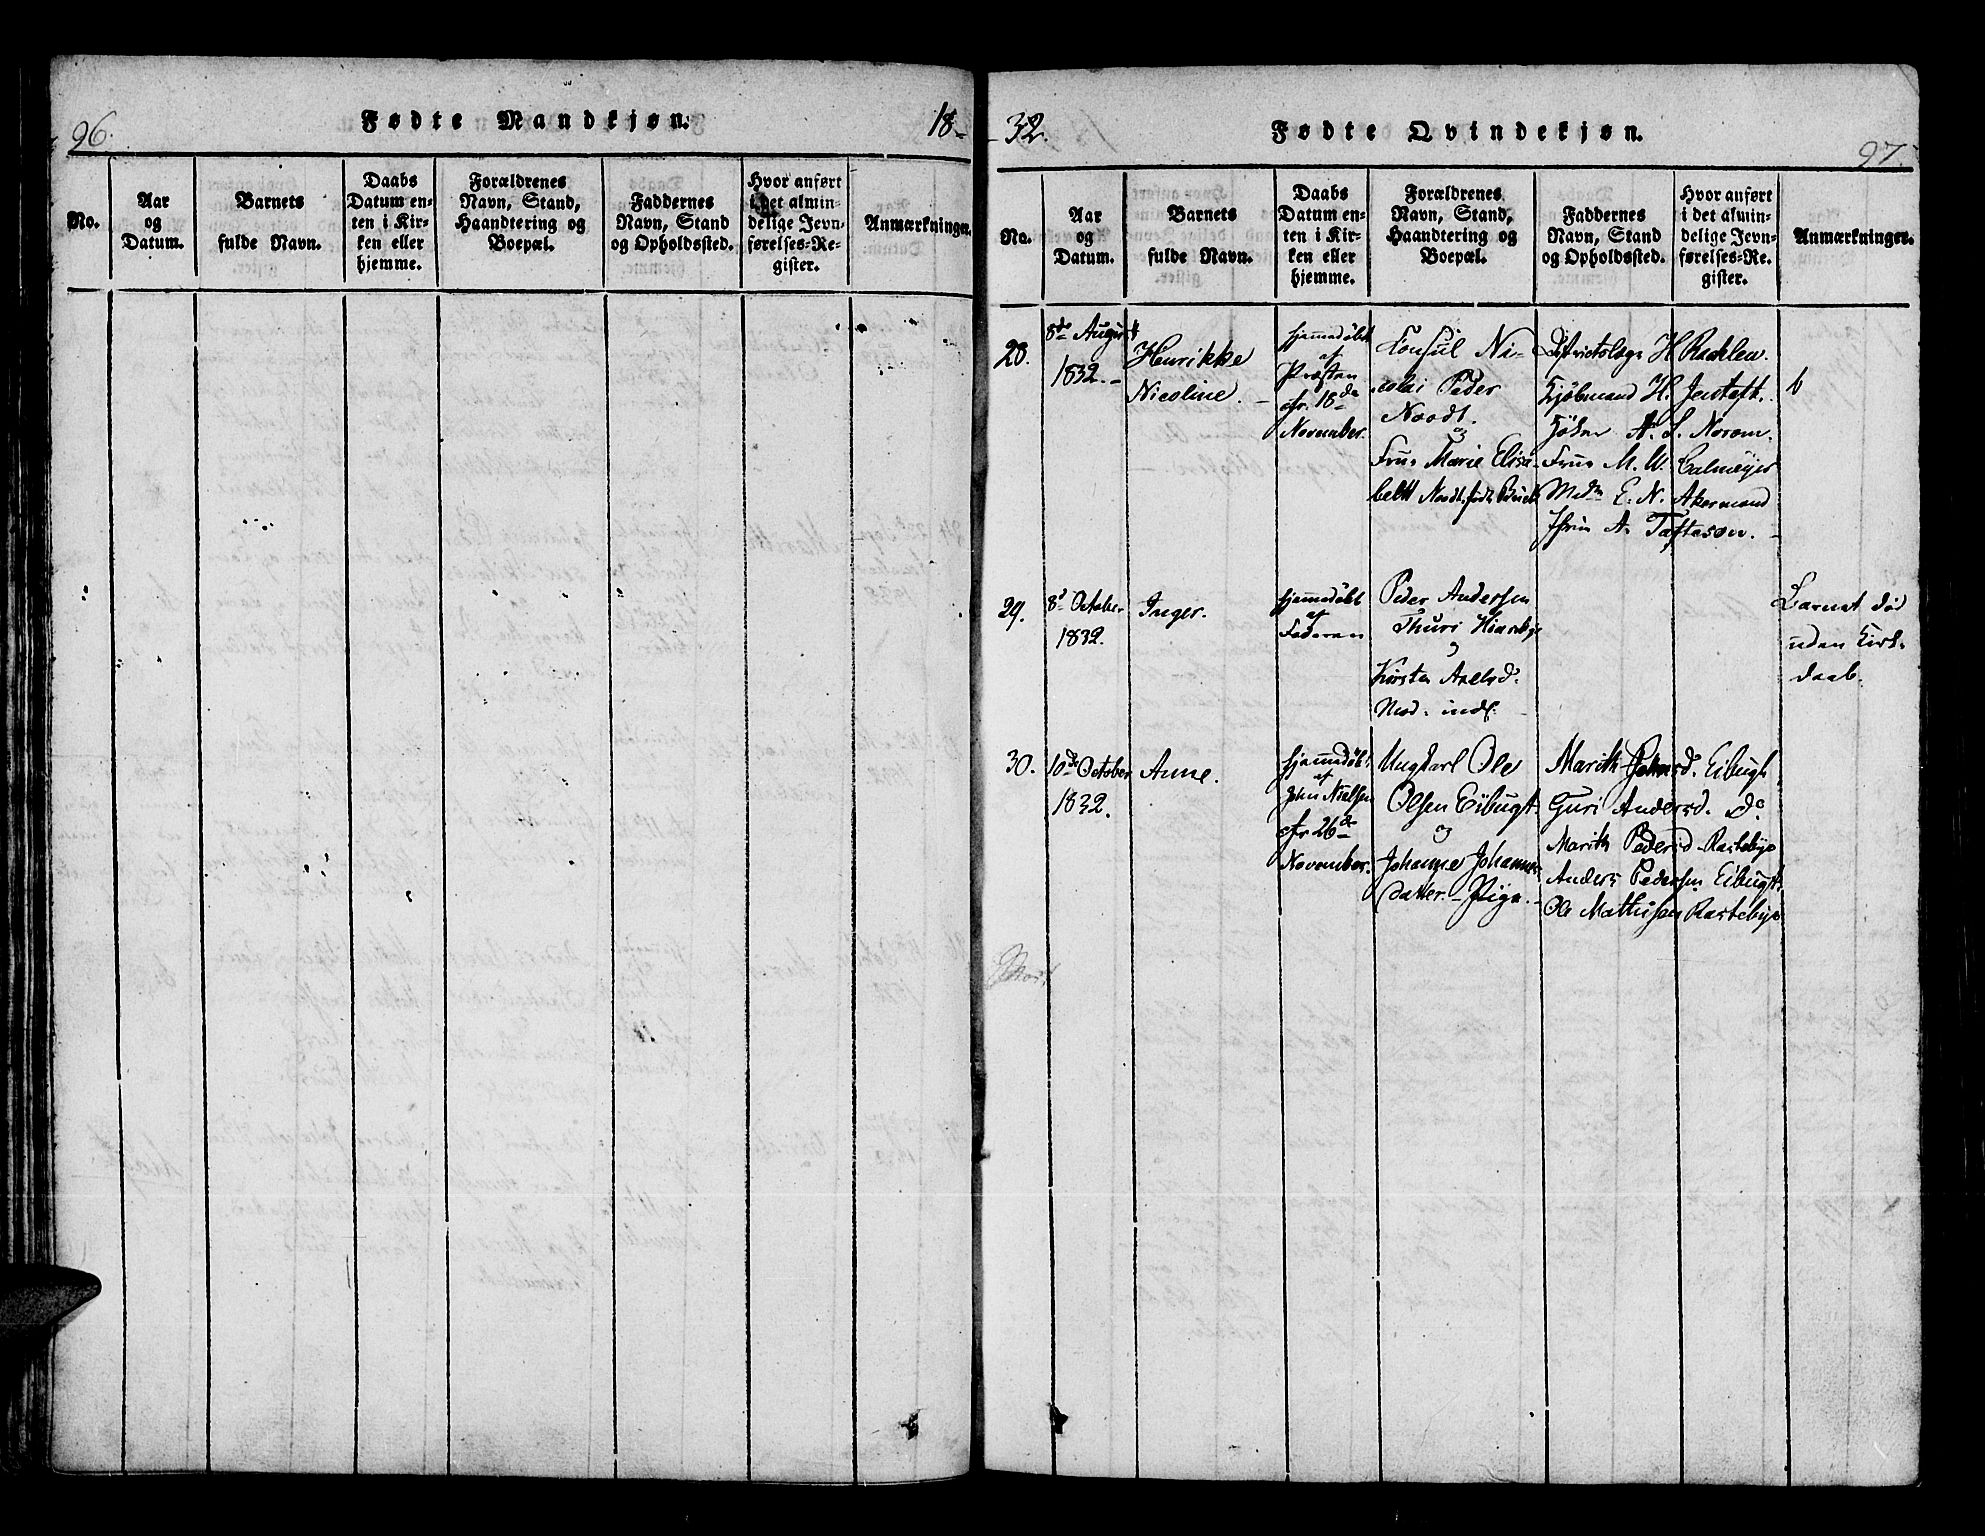 96.
Fødte Mandkjøn.
18-
No.
Aar
og
Datum.
Barnets
fulde Navn.
Daabs
Datum en-
ten i Kir-
ken eller
hjemme.
Forældrenes
Navn, Stand,
Haandtering og
Boepæl.
Faddernes
Navn, Stand
og Opholdssted.
Hvor anført
i det almin-
delige Jevn-
førelses-Re-
gister.
Anmærkninger.
-32.
Fødte Qvindekjøn.
97.
No.
Aar
og
Datum.
Barnets
fulde Navn.
Daabs
Datum en-
ten i Kir-
ken eller
hjemme.
Forældrenes
Navn, Stand,
Haandtering og
Boepæl.
Faddernes
Navn, Stand
og Opholdssted.
Hvor anført
i det almin-
delige Jevn-
førelses-Re-
gister.
Anmærkninger.
28.
8de August
1832.-
Henrikke
Nicoline.
hjemmedøbt
af
Præsten
cfr. 18de
November.
Consul Ni-
colai Peder
Noodt.
og
Frue Marie Elisa-
beth Noodt, født
Districtslæge H.
Kjøbmand H. Jentoft.
A. S. Norom.
Frue M. W. Calmeyer
Mdm E. N. Akermand
A. Taftesøn.
b
29.
8de October
1832.
Inger.
hjemmedøbt
af
Faderen
Peder Andersen
Thuri
og
Kirsten Axelsd.
Barnet død
uden Kirke-
daab.
30.
10de October
1832.
Anne.
hjemmedøbt
af
John Nielsen
cfr 26de
November.
Ungkarl Ole
Olsen Eibugt.
og
Johanne Johannes-
datter.- Pige.-
Marith Johnsd. Eibugt
Guri Andersd. do
Marith Pedersd Rastebye
Anders Pedersen Eibugt.
Ole Mathisen Rastebye